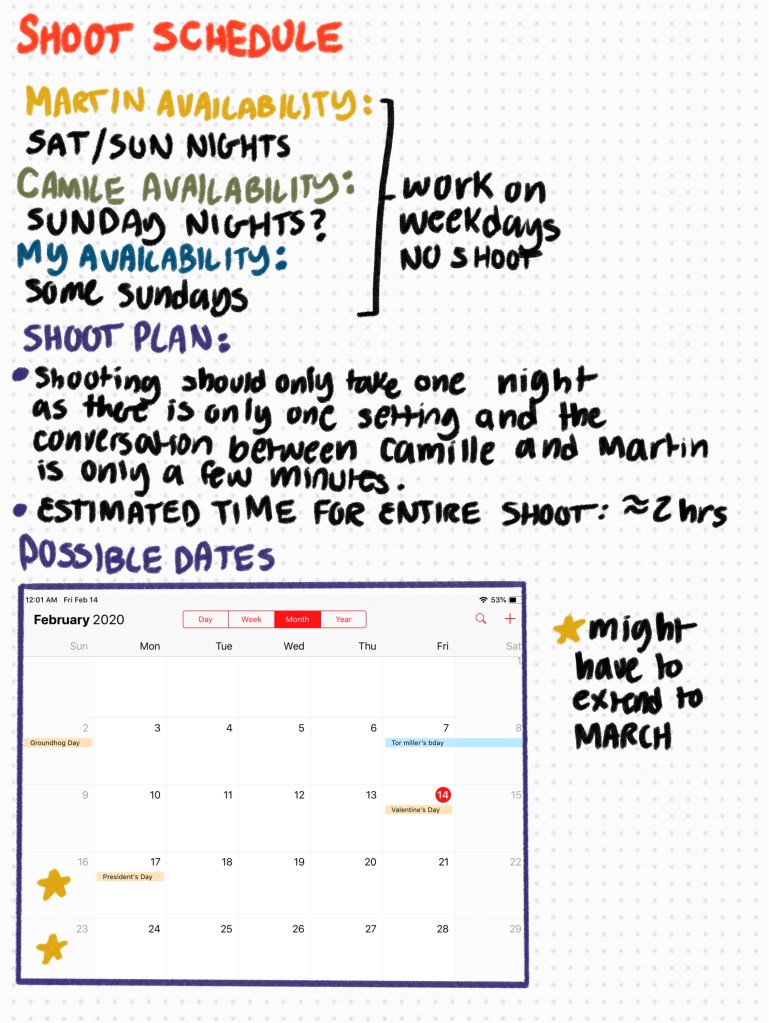 SHOOT SCHEDULE
MARTIN AVAILABILITY:
SAT/SUN NIGHTS
CAMILE AVAILABILITY:
SUNDAY NIGHTS?
MY AVAILABILITY:
some sundays
work on
weekdays
NO SHOOT
SHOOT PLAN:
• Shooting should only take one night
as there is only one setting and the
conversation between Camille and Martin
is only a few minutes.
• ESTIMATED TIME FOR ENTIRE SHOOT: ≈2 hrs
POSSIBLE DATES
12:01 AM Fri Feb 14 53%
February 2020 Day Week Month Year +
Sun Mon Tue Wed Thu Fri Sat
1
2 3 4 5 6 7 8
Groundhog Day Tor miller's bday
9 10 11 12 13 14 15
Valentine's Day
16 17 18 19 20 21 22
President's Day
23 24 25 26 27 28 29
★ might
have to
extend to
MARCH